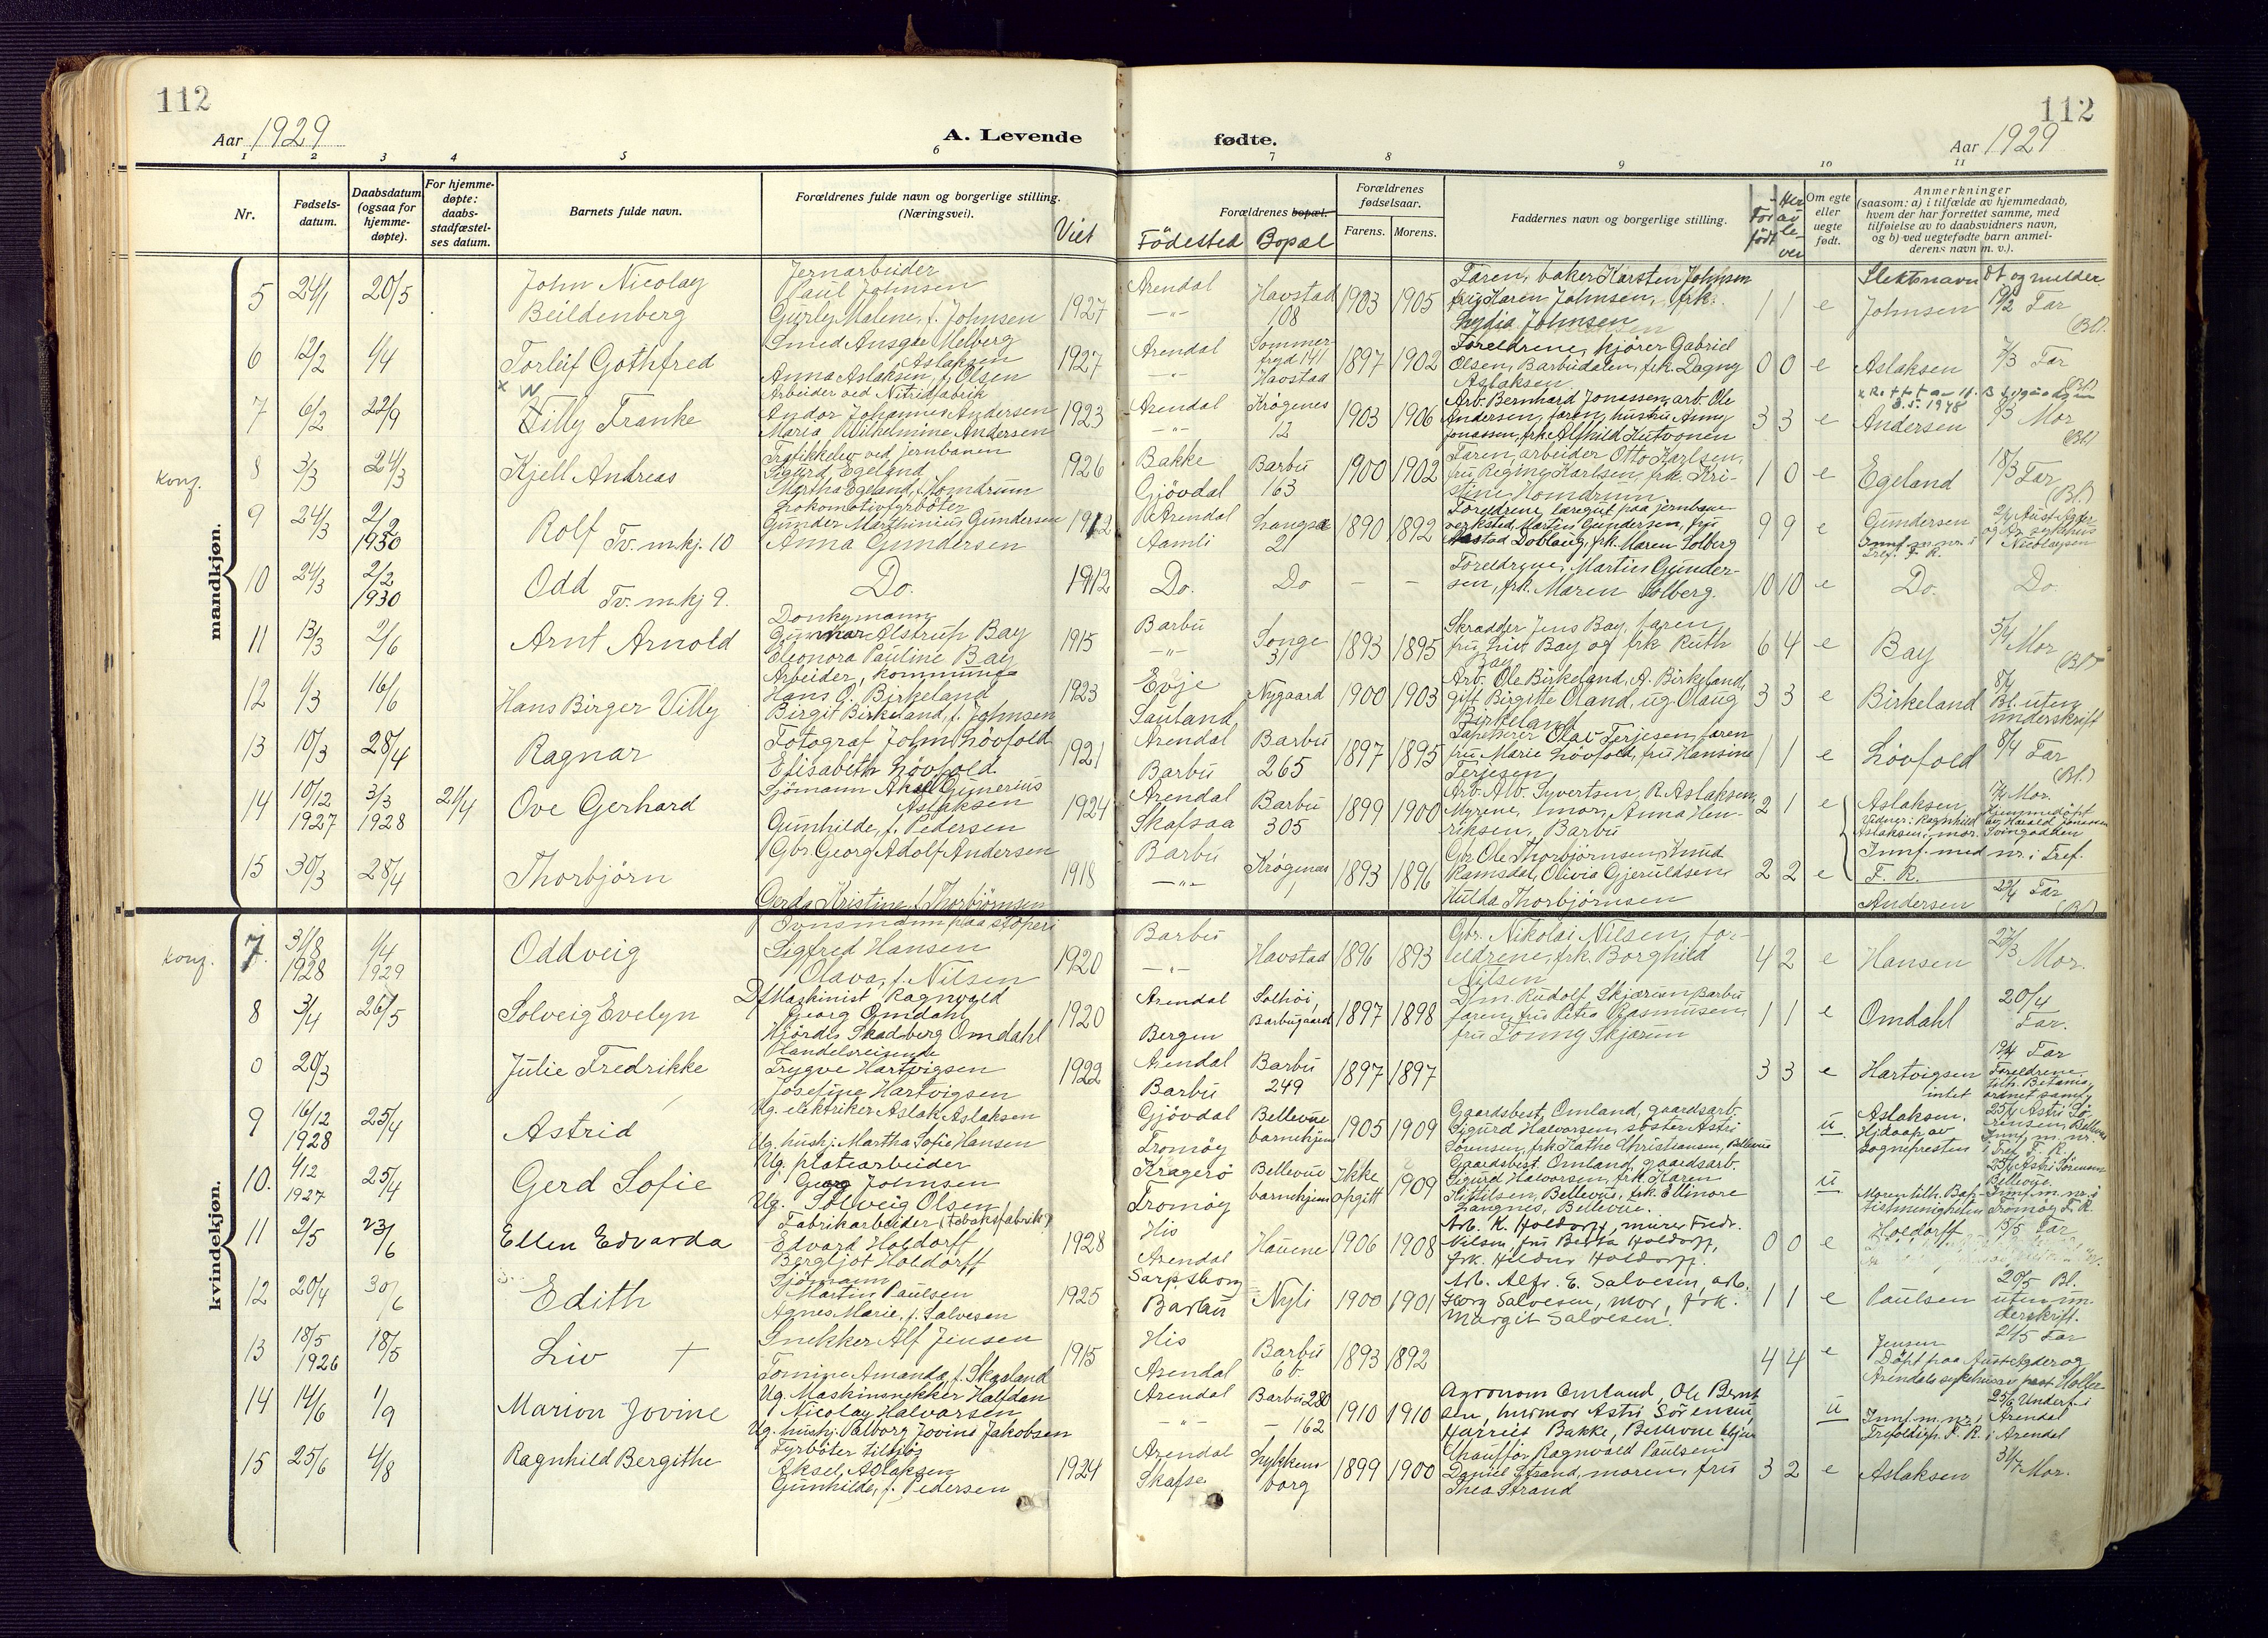 112
112
Aar 1929
A. Levende
fødte.
Aar 1929
1 2 3 4 5 6 7 8 9 10 11
Nr.
Fødsels-
datum.
Daabsdatum
(ogsaa for
hjemme-
døpte).
For hjemme-
døpte:
daabs-
stadfæstel-
ses datum.
Barnets fulde navn.
Forældrenes fulde navn og borgerlige stilling.
(Næringsvei).
Viet
Forældrenes bopæl.
Födested Bopæl
Forældrenes
fødselsaar.
Farens. Morens.
Faddernes navn og borgerlige stilling.
Før
født
Her
av
le-
ver
Om egte
eller
uegte
født.
Anmerkninger
(saasom: a) i tilfælde av hjemmedaab,
hvem der har forrettet samme, med
tilføielse av to daabsvidners navn,
og b) ved uegtefødte barn anmel-
derens navn m. v.).
Slektsnavn Dt og melder
mandkjøn.
5 24/1 20/5
John Nicolay
Beildenberg
Jernarbeider
Paul Johnsen
Gurly Malene, f. Johnsen
1927
Arendal
-"-
Havstad
108
1903 1905
Faren, baker Karsten Johnsen
fru Karen Johnsen, frk.
Lydia Johnsen
1 1 e
Johnsen
19/2 Far
(Bl.)
6 12/2 1/4
Torleif Gothfred
Smed Ansgar Melberg
Aslaksen
Anna Aslaksen, f. Olsen
1927
Arendal
-"-
Sommer-
fryd 141
Havstad
1897 1902
Foreldrene, kjører Gabriel
Olsen, Barbudalen, frk. Dagny
Aslaksen
0 0 e
Aslaksen
7/3 Far
(Bl.)
7 6/2 22/9
x W
Villy Franke
Arbeider ved Nitridfabrik
Andor Johannes Andersen
Maria Wilhelmine Andersen
1923
Arendal
-"-
Krögenes
12
1903 1906
Arb. Bernhard Jonassen, arb. Ole
Andersen, faren, hustru Anny
Jonassen, frk. Alfhild Hutvonen
3 3 e
3.5.1948
Andersen
8/3 Mor
(Bl.)
Konf.
8 3/3 24/3
Kjell Andreas
Trafikkelev ved jernbanen
Sigurd Egeland
Martha Egeland, f. Homdrum
1926
Bakke
Gjövdal
Barbu
163
1900 1902
Faren, arbeider Otto Karlsen,
fru Regine Karlsen, frk. Kri-
stine Homdrum
1 0 e
Egeland
18/3 Far
(Bl.)
9 24/3 2/2
1930
Rolf Tv. m. kj. 10
Lokomotivfyrböter
Gunder Marthinius Gundersen
Anna Gundersen
1912
Arendal
Aamli
Langsæ
21
1890 1892
Foreldrene, læregut paa jernbane
verksted Martin Gundersen, fru
Aastad Doblaug, frk. Maren Solberg
9 9 e
Gundersen
Innf. m. nr. i
Tref. F. R.
2/4 Aust-Agder
og Ar. sykehus
Nicolaysen
10 24/3 2/2
1930
Odd Tv. m. kj 9.
Do.
1912
Do. Do
- -
Foreldrene, Martin Gunder-
sen, frk. Maren Solberg.
10 10 e
Do. Do.
11 13/3 2/6
Arnt Arnold
Donkymann
Gunnar Alstrup Bay
Eleonora Pauline Bay
1915
Barbu
-"-
Songe
31
1893 1895
Skrædder Jens Bay, faren
fru Bay og frk Ruth
Bay
6 4 e
Bay
5/4 Mor
(Bl.)
12 1/3 16/6
Hans Birger Villy
Arbeider, kommune
Hans O. Birkeland
Birgit Birkeland, f. Johnsen
1923
Evje
Sauland
Nygaard
1900 1903
Arb. Ole Birkeland, A. Birkeland,
gift Birgitte Öland, ug. Olaug
Birkeland
3 3 e
Birkeland
8/4
Bl. uten
underskrift
13 10/3 28/4
Ragnar
Fotograf John Lövfold
Elisabeth Lövfold
1921
Arendal
Barbu
Barbu
265
1897 1895
Tapetserer Olav Terjesen, faren
fru Marie Lövfold, fru Hansine
Terjesen
1 1 e
Lövfold
8/4 Far
(Bl.)
14 10/12
1927
3/3
1928
21/4
Ove Gerhard
Sjömann Aksel Gunerius
Aslaksen
Gunhilde, f. Pedersen
1924
Arendal
Skafsaa
Barbu
305
1899 1900
Arb. Alv. Syvertsen, R. Aslaksen,
Myrene, mor, Anna Hen-
riksen, Barbu
2 1 e
Aslaksen
17/4 Mor.
Hjemmedöpt
Vidner: Ragnhild av Harald Jonassen
Aslaksen, mor. Svingodden
Innf. med nr. i Tref.
F. R.
15 30/3 28/4
Thorbjörn
Gbr. Georg Adolf Andersen
Gerda Kristine, f. Thorbjörnsen
1918
Barbu
-"-
Krögenes
1
1893 1896
Gbr. Ole Thorbjörnsen, Knud
Ramsdal, Olivia Gjeruldsen,
Hulda Thorbjörnsen
2 2 e
Andersen
22/4 Far
(Bl.)
kvindekjøn.
Konf.
7. 31/8
1928
1/4
1929
Oddveig
Sigfred Hansen
Olava, f. Nilsen
1920
Barbu
-"-
Havstad
1896 1893
Gbr. Nikolai Nilsen, for-
eldrene, frk. Borghild
Nilsen
4 2 e
Hansen
27/3 Mor.
8 3/4 26/5
Solveig Evelyn
D/Maskinist Ragnvald
Georg Omdahl
Hjördis Skadberg Omdahl
1920
Arendal
Bergen
Solhöi,
Barbugaard
1897 1898
D/m. Rudolf Skjærum Barbu
faren, fru Petra Rasmusen,
fru Tonny Skjærum
1 1 e
Omdahl
20/4
Far.
0 20/3
Julie Fredrikke
Handelsreisende
Trygve Hartvigsen
Josefine Hartvigsen
1922
Arendal
Barbu
Barbu
249
1897 1897
3 3 e
Hartvigsen
19/4 Far
Foreldrene
tilh. Betania,
intet ordnet samf.
9 16/12
1928
25/4
Astrid
Ug. elektriker Aslak Aslaksen
Ug. hushj. Martha Sofie Hansen
Gjövdal
Tromöy
Bellevue
barnehjem
1905 1909
Gaardsbest. Omland, gaardsarb.
Sigurd Halvorsen, söster Astri
Sörensen, frk. Kathe Christiansen, Bellevue
u
Aslaksen.
Hjdaap av
sognepresten
25/4 Astri Sö-
rensen, Bellevue
Innf. m. nr.
i Tref. F. R.
10. 4/12
1927
25/4
Gerd Sofie
Ug. platearbeider
Georg Johnsen
Ug. Solveig Olsen
Kragerö
Tromöy
Bellevue
barnehjem
Ikke
opgitt
1909
Gaardsbest. Omland, gaardsarb.
Sigurd Halvorsen, frk. Karen
Kittilsen, Bellevue, frk. Ellinore
Langnes, Bellevue.
u
25/4 Astri Sörensen
Bellevue.
Moren tilh. Bap- Innf. m. nr. i
tistmenigheten Tromöy F. R.
11 2/5 23/6
Ellen Edvarda
Fabrikarbeider (tobaksfabrik)
Edvard Holdorff
Bergljot Holdorff
1928
His
Arendal
Hauene
1906 1908
Arb. K. Holdorff, murer Fredr.
Nilsen, fru Berta Holdorff,
frk. Hildur Holdorff.
0 0 e
Holdorff 15/5 Far
12 20/4 30/6
Edith
Sjömann
Martin Paulsen
Agnes Marie, f. Salvesen
1925
Sarpsborg
Barbu
Nyli
1900 1901
Arb. Alfr. E. Salvesen, arb.
Georg Salvesen, mor, frk.
Margit Salvesen.
1 1 e
Paulsen
20/5 Bl.
uten un-
derskrift.
13 18/5
1926
18/5
Liv +
Snekker Alf Jensen
Tomine Amanda, f. Skaaland
1915
His
Arendal
Barbu
6 b.
1893 1892
4 4 e
Jensen
21/5 Far
Döpt paa Aust-Agder og
Arendals sykehus av past Möller
14 14/6 1/9
Marion Jovine
Ug. Maskinsnekker Halfdan
Nicolay Halvorsen
Ug. hushj. Valborg Jovine Jakobsen
Arendal
-"-
Barbu 280
- 162
1910 1910
Agronom Omland, Ole Bernt
sen, husmor Astri Sörensen,
Harriet Bakke, Bellevue bhjem
u
25/6 Underf. i
Innf. m. nr. i Arendal
Trefoldigh. F. R. i Arendal
15 25/6 4/8
Ragnhild Bergithe
Fyrböter tilsjös
Aksel Aslaksen
Gunhilde, f. Pedersen
1924
Arendal
Skafse
Lykkens
borg
1899 1900
Chauffør Ragnvald Paulsen
Daniel Strand, moren, fru
Thea Strand
3 2 e
Aslaksen
31/7 Mor.